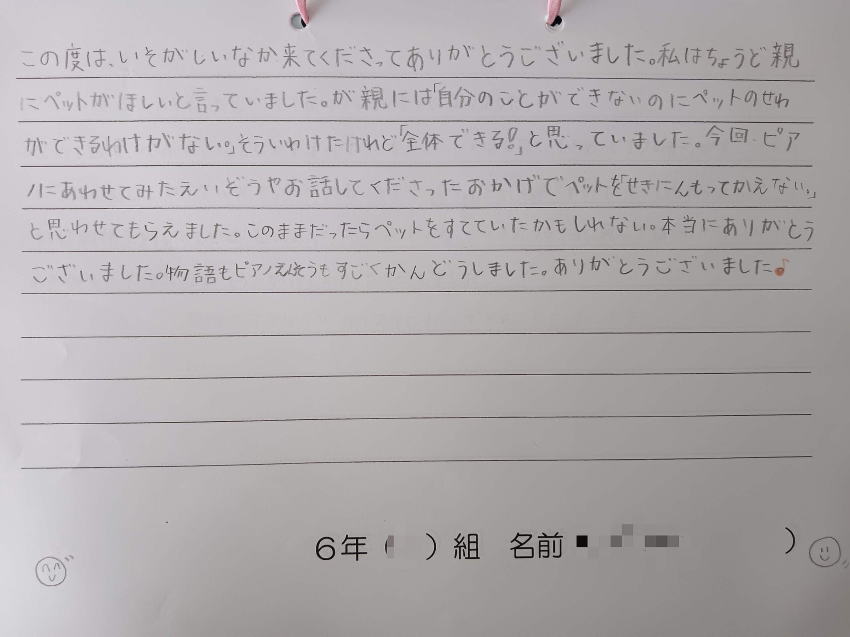 この度は、いそがしいなか来てくださってありがとうございました。私はちょうど親
にペットがほしいと言っていました。が親には「自分のことができないのにペットのせわ
ができるわけがない。」そういわけたけれど「全体できる!」と思っていました。今回、ピア
ノにあわせてみたえいぞうやお話してくださったおかげでペットを「せきにんもってかえない。」
と思わせてもらえました。このままだったらペットをすてていたかもしれない。本当にありがとう
ございました。物語もピアノえんそうもすごくかんどうしました。ありがとうございました♪
6年( )組 名前 )